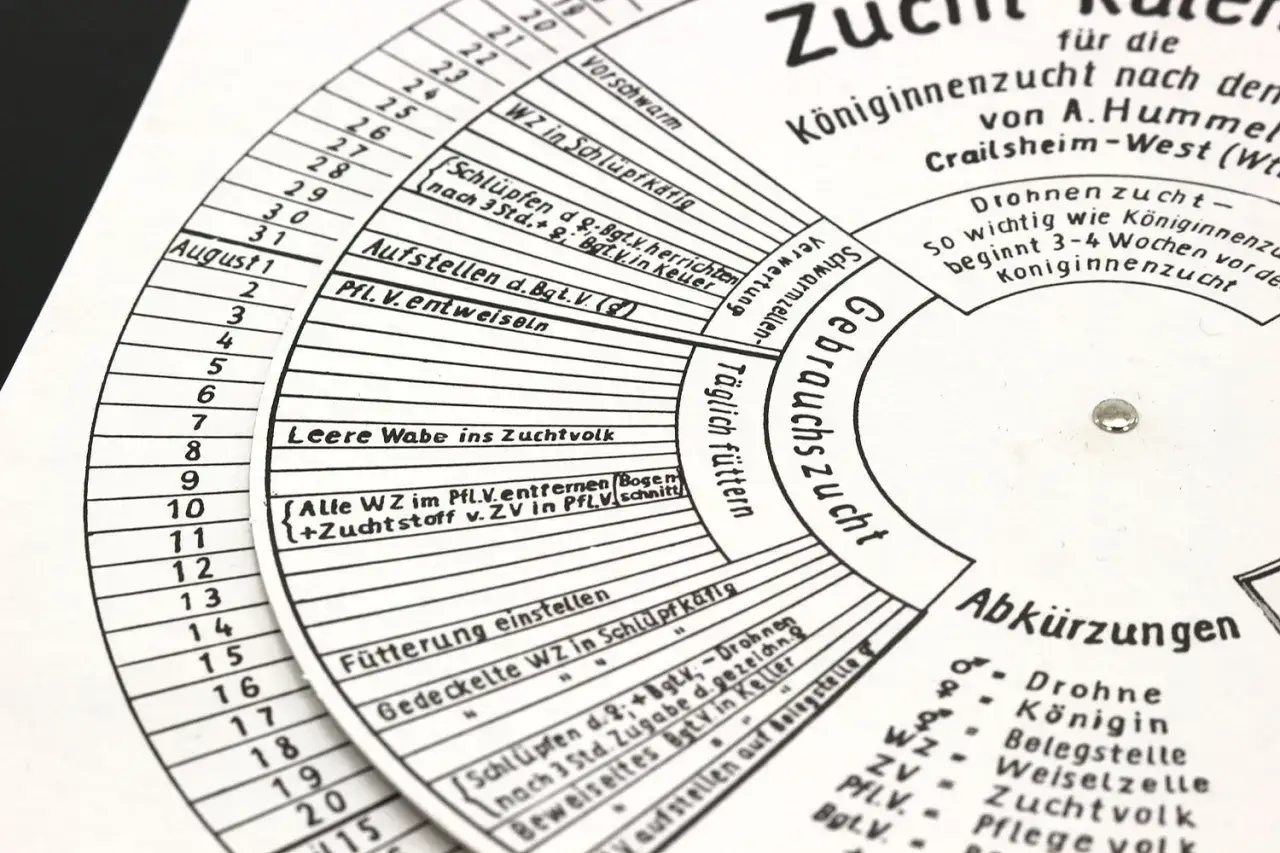 Zucht
für die
Königinnenzucht nach dem
von A. Hummel
Crailsheim-West
Drohnenzucht –
so wichtig wie
beginnt 3-4 Wochen vor
Königinnenzucht
19
20
21
22
23
24
25
26
27
28
29
30
31
August 1
2
3
4
5
6
7
8
9
10
11
12
13
14
15
16
17
18
19
20
15
Vorschwarm
WZ in Schlüpfkäfig
{Schlüpfen d ♀. Bgt.V. herrichten
nach 3 Std. + ♀; Bgt.V. in Keller
Aufstellen d. Bgt.V. (♂)
Schwarmzellen-
verwertung
Pfl.V. entweiseln
Leere Wabe ins Zuchtvolk
{Alle WZ im Pfl.V. entfernen (Bogen
+Zuchtstoff v. ZV in Pfl.V. schnitt)
Täglich füttern
Gebrauchszucht
Fütterung einstellen
Gedeckelte WZ in Schlüpfkäfig
" " "
{Schlüpfen d. ♀; + Bgt.V. – Drohnen
nach 3 Std. Zugabe d. gezeichn. ♀
Beweiseltes Bgt.V in Keller
" " "
V aufstellen auf Belegstelle
Abkürzungen
♂ = Drohne
♀ = Königin
= Belegstelle
WZ = Weiselzelle
ZV = Zuchtvolk
Pfl.V. = Pflegevolk
Bgt.V. =